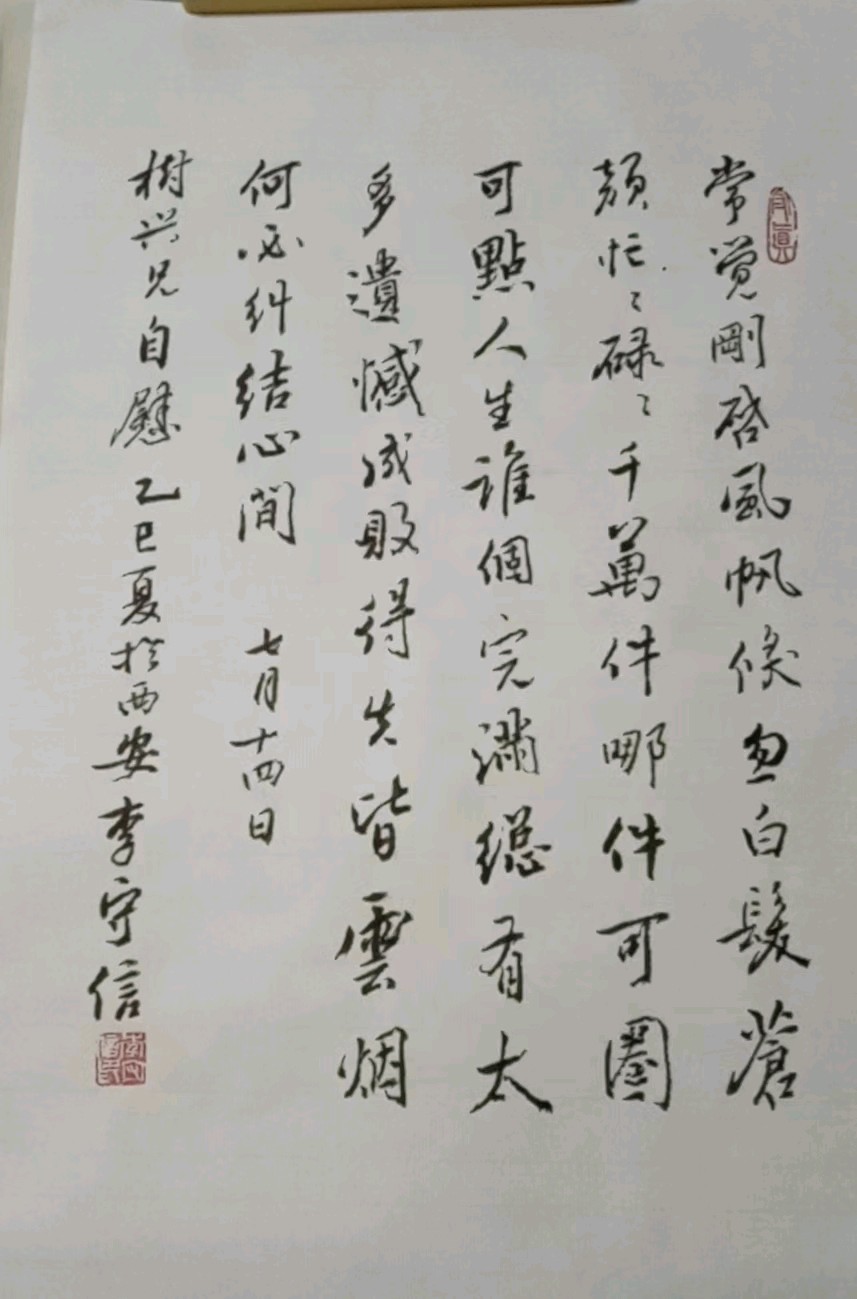 常觉剛啓風帆倏忽白髮蒼
顔忙〻碌〻千萬件哪件可圈
可點人生誰個完滿總有太
多遺憾成敗得失皆雲烟
何必糾結心間 七月十四日
樹兴兄自慰乙巳夏於西安李守信